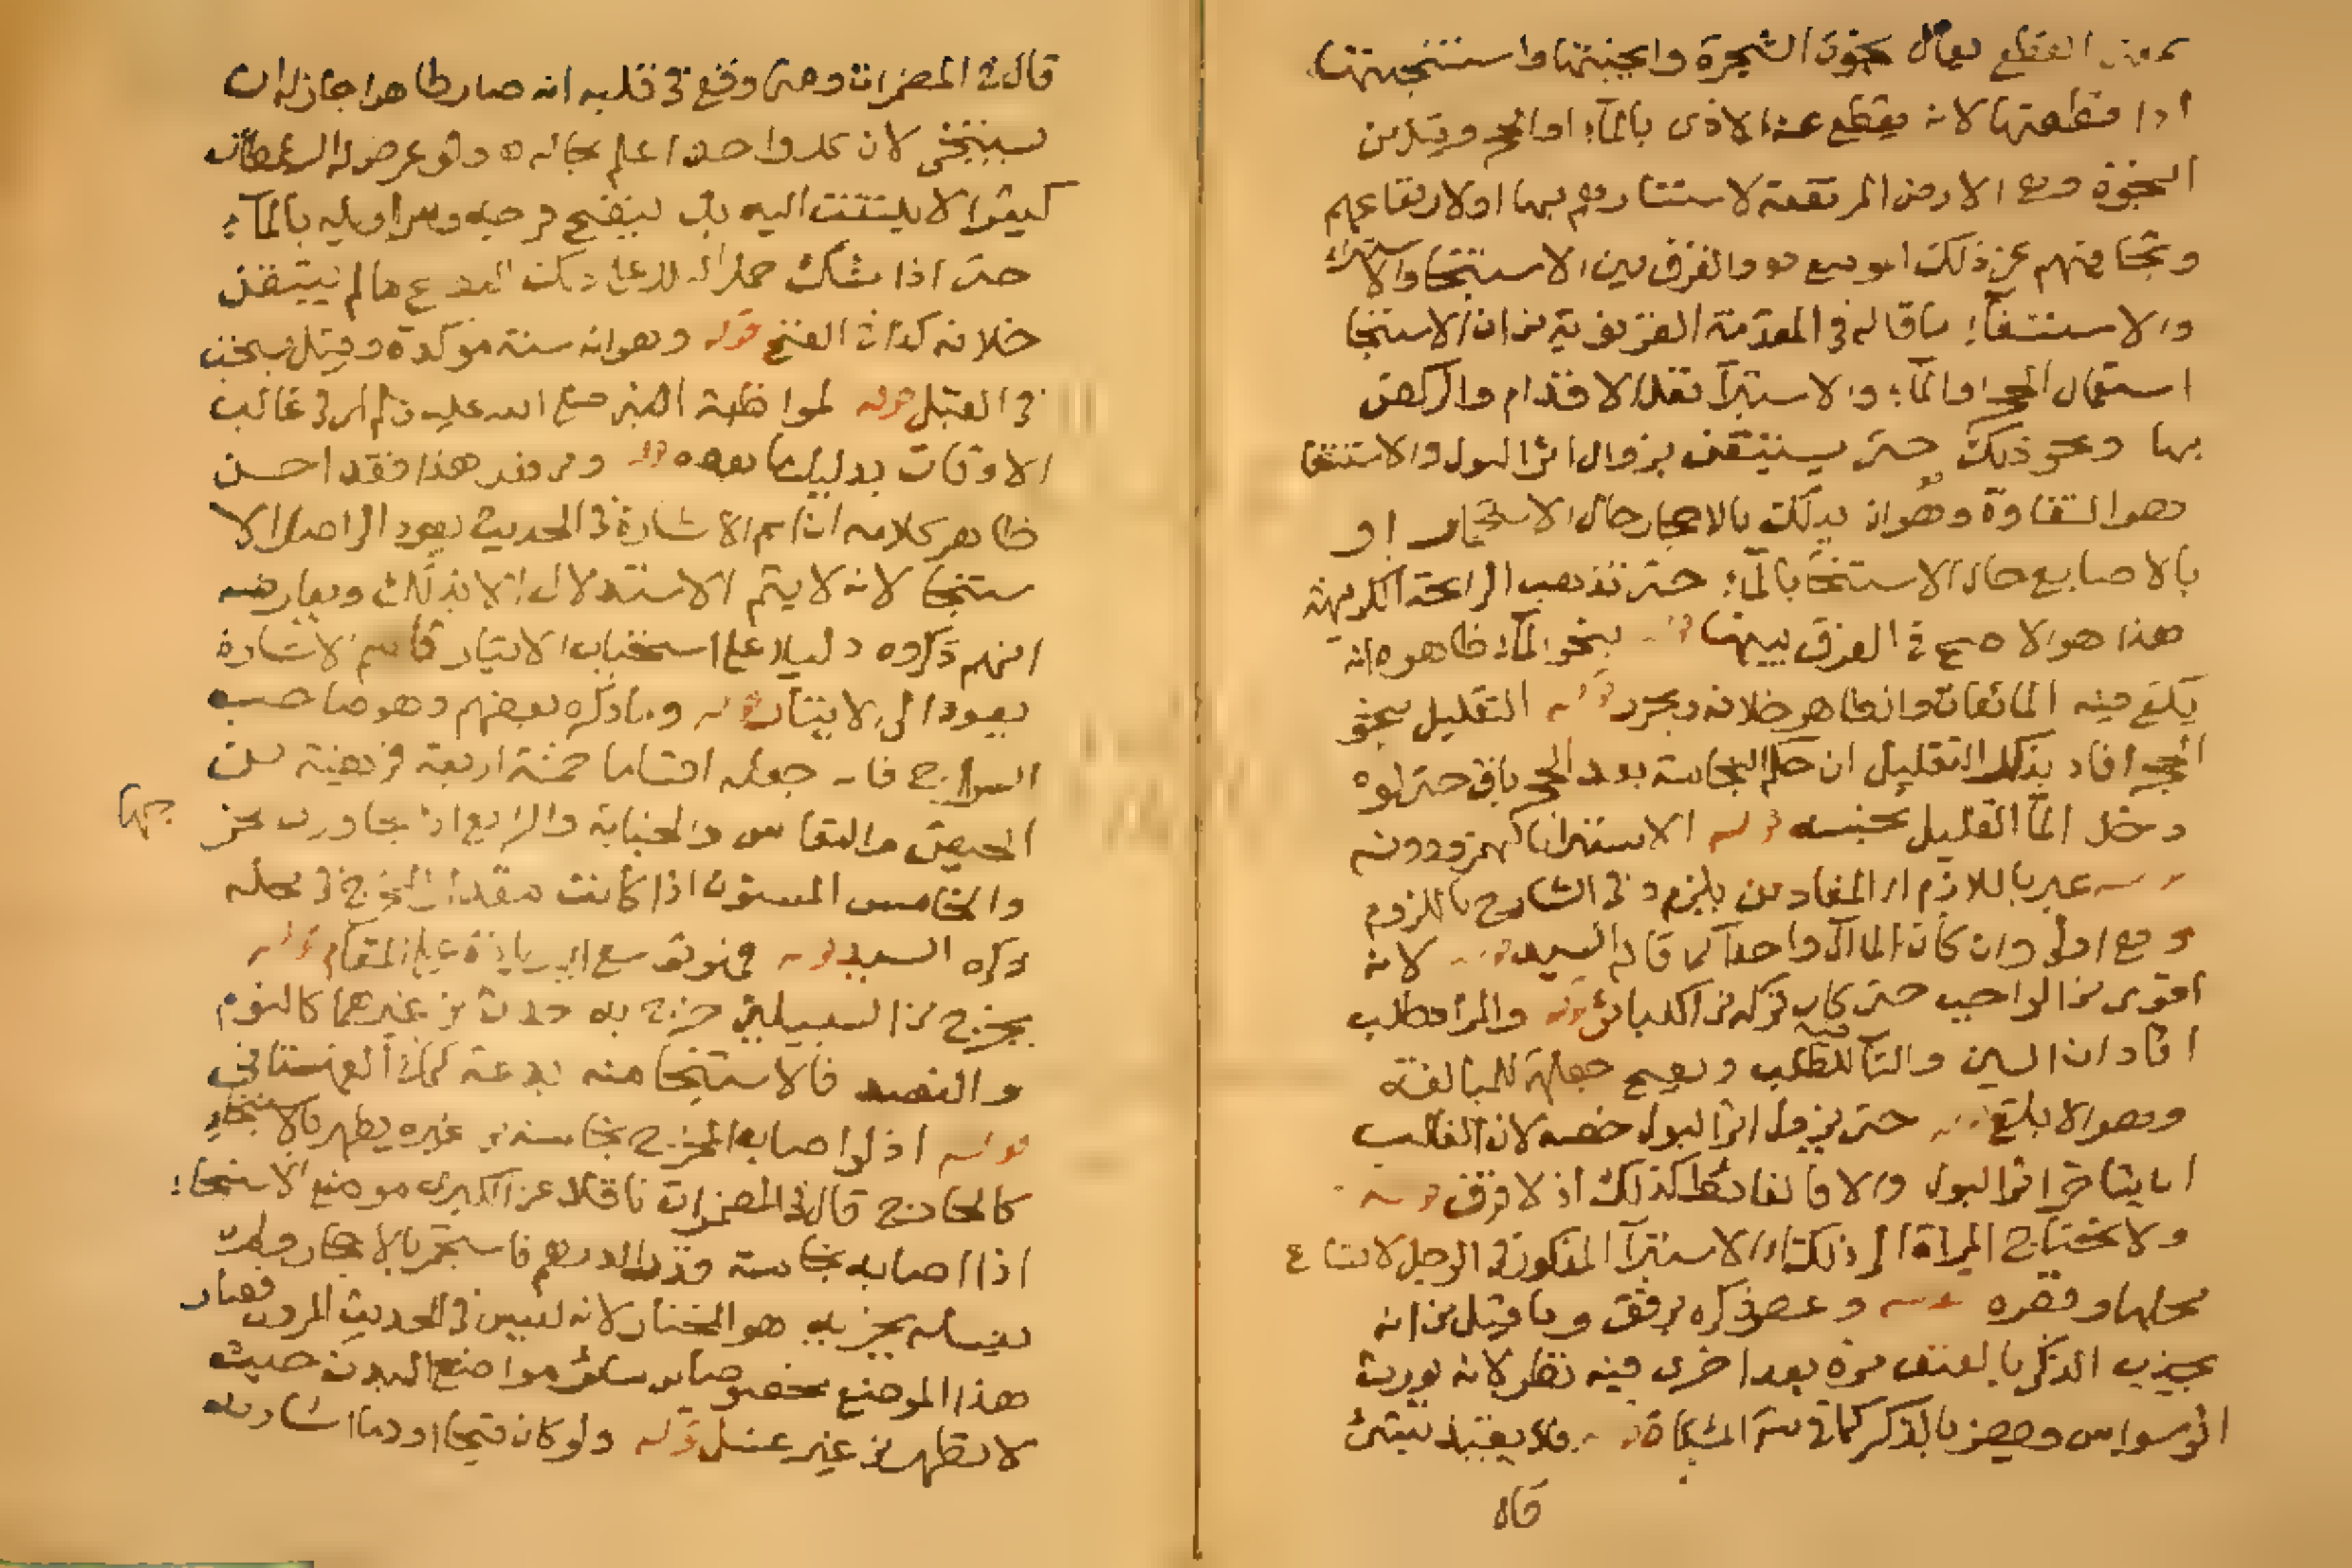 بمعنى القطع يقال نجوت الشجرة وانجيتها واستنجيتها
اذا قطعتها لانه يقطع عنه الاذى بالماء او الحجر وقيل من
النجوة وهى الارض المرتفعة لاستتارهم بها او لارتفاعهم
وتجافيهم عن ذلك الموضع والفرق بين الاستنجا والاستبراء
والاستنقاء ما قاله فى المقدمة الغزنوية من ان الاستنجا
استعمال الحجر او الماء والاستبرآ نقل الاقدام والركض
بها ونحو ذلك حتى يستيقن بزوال اثر البول والاستنقا
هو النقاوة وهو ان يدلك بالاحجار حال الاستجمار او
بالاصابع حال الاستنجا بالماء حتى تذهب الرائحة الكريهة
هذا هو الاصح فى الفرق بينها قوله بنحو الماء ظاهره انه
يكفى فيه المائعات والظاهر خلافه قوله التقليل بنحو
الحجر افاد بذكر التقليل ان حكم النجاسة بعد الحجر باق حتى لو
دخل الما القليل نجسه قوله الاستبرا
قوله عبر باللازم
وان كان المآل واحدا كما قاله السيد قوله لانه
اقوى من الواجب حتى كان تركه من الكبائر قوله والمراد طلب
افاد ان السين والتا للطلب ويصح جعلها للمبالغة
وهو الابلغ قوله حتى يزيل اثر البول خصه لان الغالب
انما يتاخر اثر البول والا فالغائط كذلك اذ لا فرق قوله
ولا تحتاج المراة الى ذلك اى الاستبرآ المذكور فى الرجل لاتساع
محلها وقصره قوله وعصر ذكره برفق وما قيل من انه
يجذب الذكر بالعنف مرة بعد اخرى فيه نظر لانه يورث
الوسواس ويضر بالذكر كما فى شرح المشكاة قوله فلا يتقيد بشئ
قال
قال فى المضمرات ومتى وقع فى قلبه انه صار طاهرا جاز له ان
يستنجى لان كل واحد اعلم بحاله ولو عرض له الشيطان
كثيرا لا يلتفت اليه بل ينضح فرجه وسراويله بالماء
حتى اذا شك حمل البلل على ذلك النضح ما لم يتيقن
خلافه كذا فى الفتح قوله وهو انه سنة مؤكدة وقيل يستحب
فى القبل قوله لمواظبة النبى صلى الله عليه وسلم فى غالب
الاوقات بدليل ما بعده قوله ومن فعل هذا فقد احسن
ظاهر كلامه ان اسم الاشارة فى الحديث يعود الى اصل الا
ستنجا لانه لا يتم الاستدلال الا بذلك ويعارضه
انهم ذكروه دليلا على استحباب الايتار فاسم الاشارة
يعود الى الايتار قوله وما ذكره بعضهم وهو صاحب
السراج فانه جعله اقساما خمسة اربعة فريضة من
الحيض والنفاس والجنابة والرابع اذا تجاوزت مخرجها
والخامس المسنون اذا كانت مقدار المخرج فى محله
ذكره السيد قوله
يخرج من السبيلين خرج به حدث من غيرهما كالنوم
والفصد فالاستنجا منه بدعة كما فى القهستانى
قوله اذ لو اصاب المخرج نجاسة من غيره يطهر بالاستنجاء
كالخارج قال فى المضمرات ناقلا عن الكبرى موضع الاستنجاء
اذا اصابه نجاسة قدر الدرهم فاستجمر بالاحجار ولم
يغسله يجزيه هو المختار لانه ليس فى الحديث المروى فصار
هذا الموضع مخصوصا من سائر مواضع البدن حيث
لا يطهر من غير غسل قوله ولو كان قيحا او دما اشار به